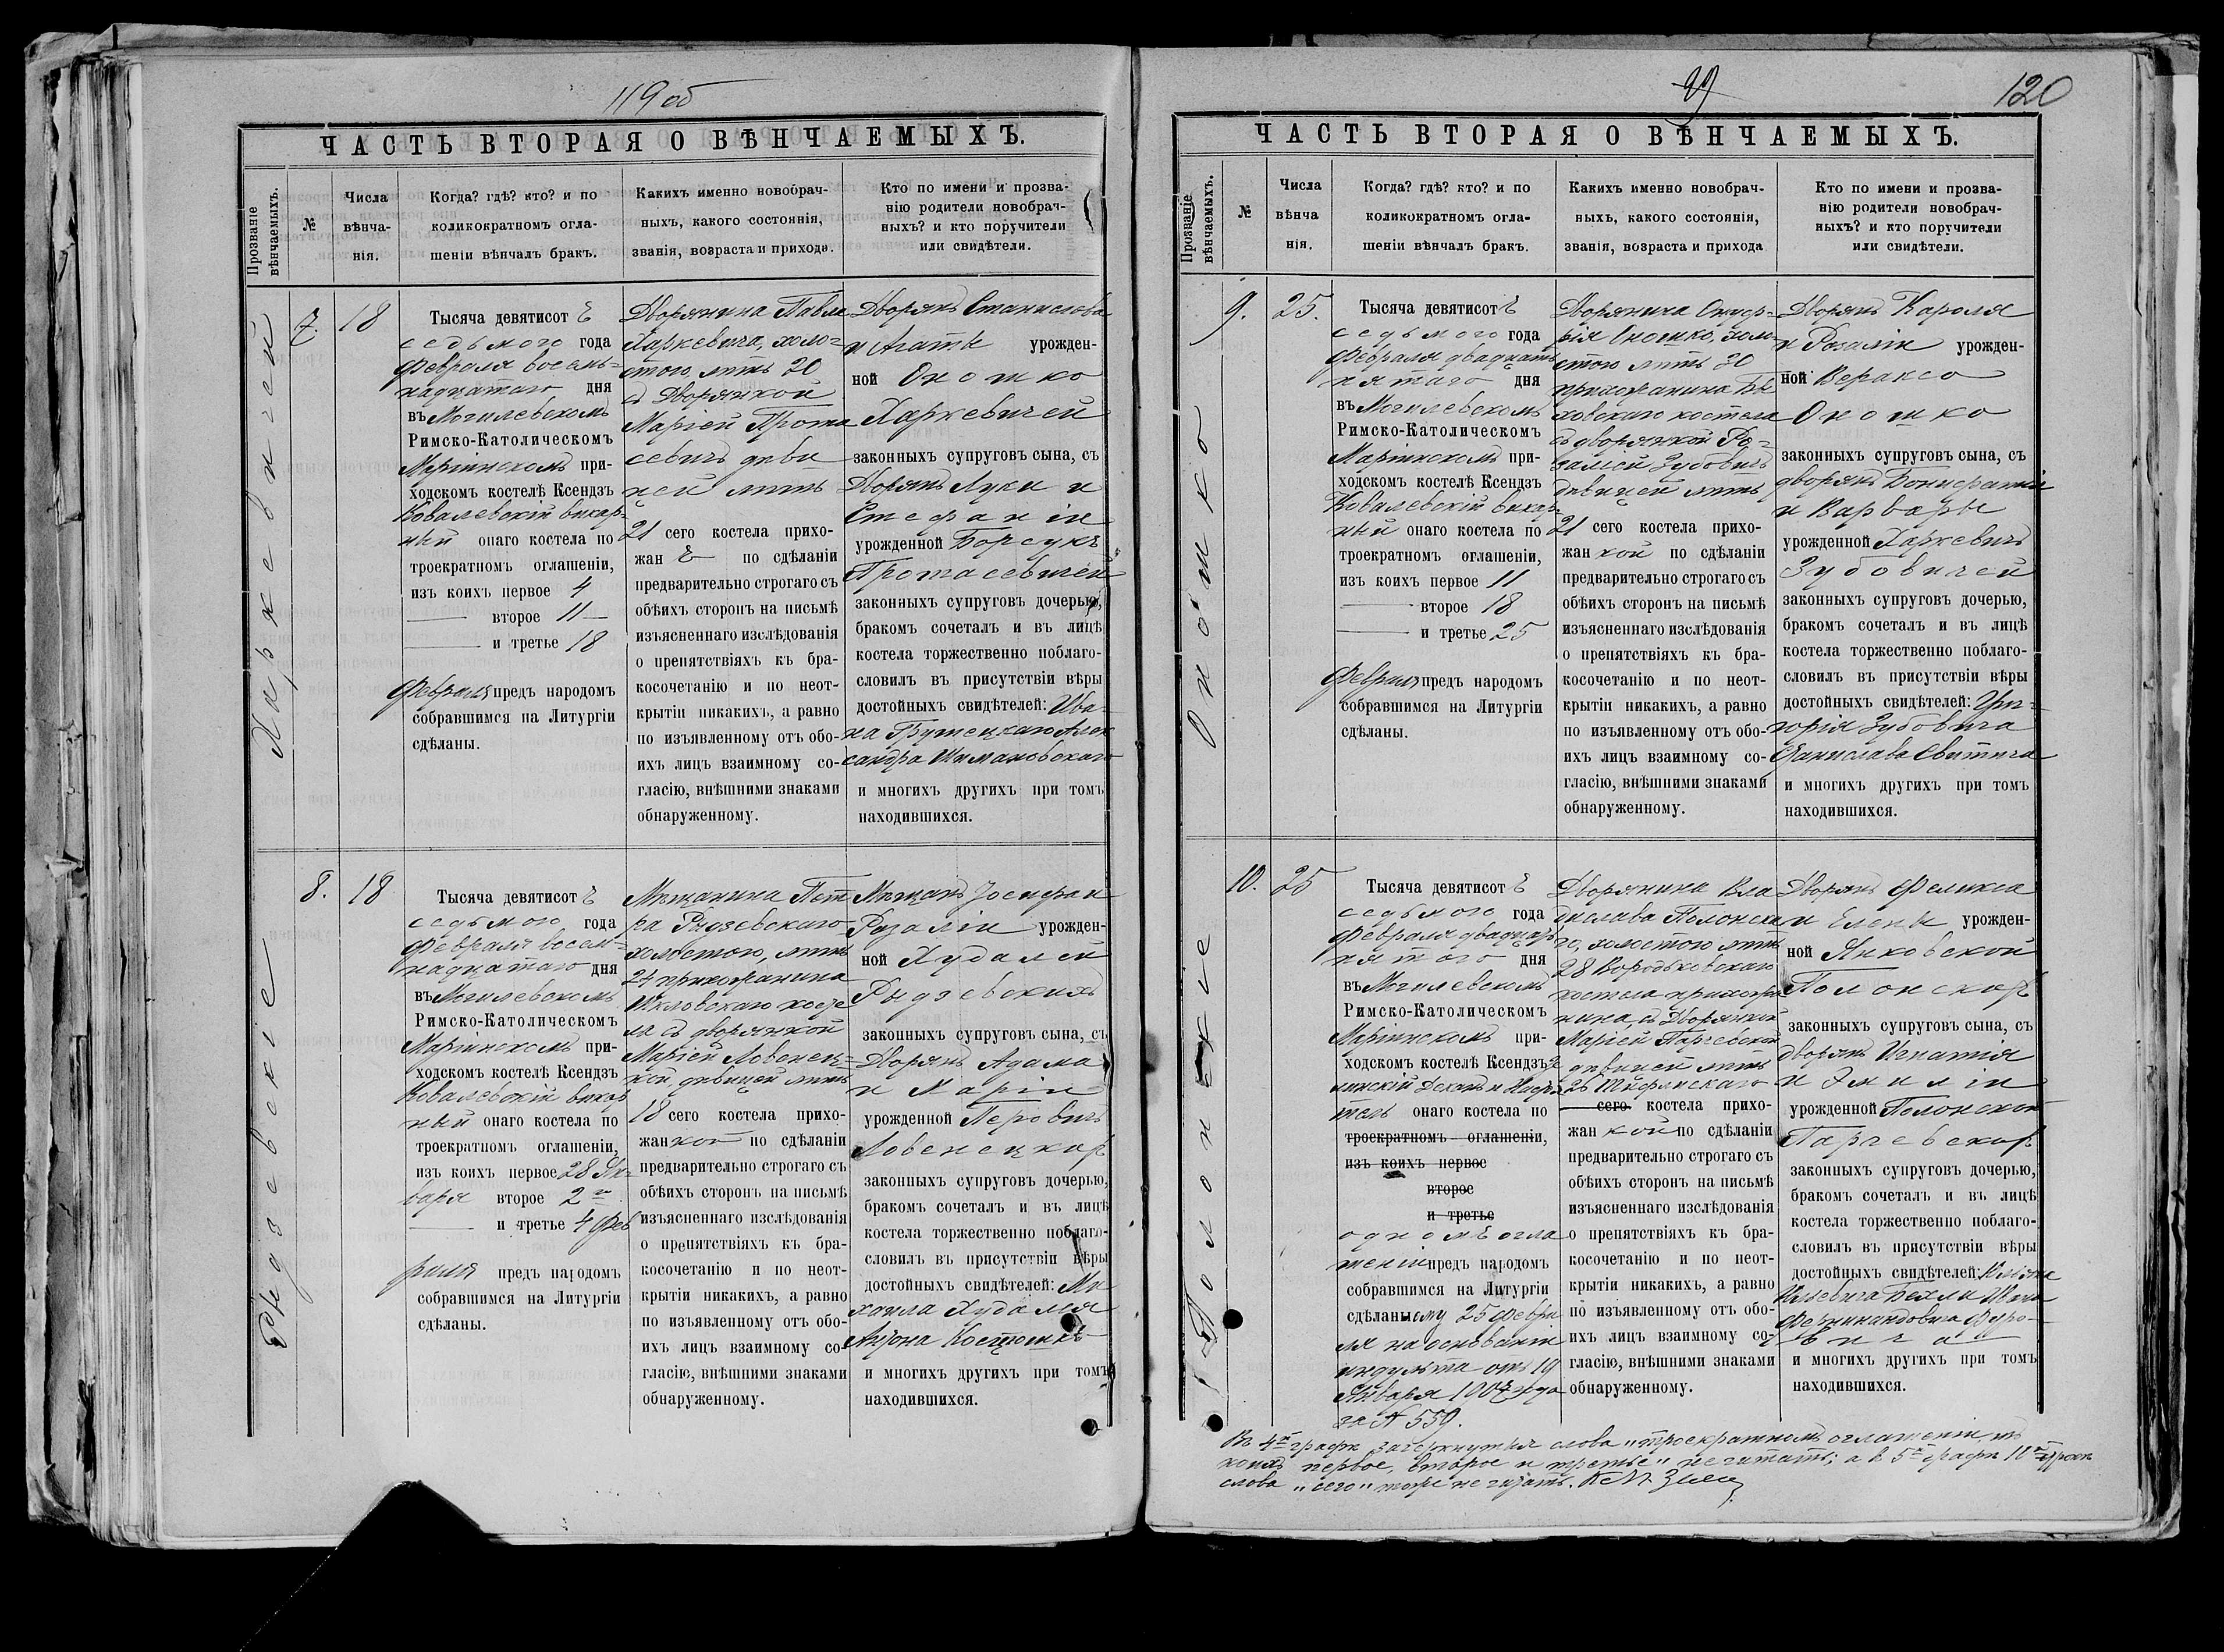 119 об
ЧАСТЬ ВТОРАЯ О ВѢНЧАЕМЫХЪ.
Прозваніе вѣнчаемыхъ.
№
Числа
вѣнча-
нія.
Когда? гдѣ? кто? и по
коликократномъ огла-
шеніи вѣнчалъ бракъ.
Какихъ именно новобрач-
ныхъ, какого состоянія,
званія, возраста и прихода.
Кто по имени и прозва-
нію родители новобрач-
ныхъ? и кто поручители
или свидѣтели.
Харкевичей
7.
18
Тысяча девятисотъ
седьмого года
Февраля восемь-
надцатаго дня
въ Могилевскомъ
Римско-Католическомъ
Маріинскомъ при-
ходскомъ костелѣ Ксендзъ
Ковалевскій викар-
ный онаго костела по
троекратномъ оглашеніи,
изъ коихъ первое 4
второе 11
и третье 18
Февраля предъ народомъ
собравшимся на Литургіи
сдѣланы.
Дворянина Павла
Харкевича, холо-
стого лѣтъ 20
съ Дворянкой
Маріей Прота
севичъ дѣви
цей лѣтъ
21 сего костела прихо-
жан ъ по сдѣланіи
предварительно строгаго съ
обѣихъ сторонъ на письмѣ
изъясненнаго изслѣдованія
о препятствіяхъ къ бра-
косочетанію и по неот-
крытіи никакихъ, а равно
по изъявленному отъ обо-
ихъ лицъ взаимному со-
гласію, внѣшними знаками
обнаруженному.
Дворянъ Станислава
и Агаты урожден-
ной Оношко
Харкевичей
законныхъ супруговъ сына, съ
Дворянъ Луки и
Стефаніи
урожденной Борсукъ
Протасевичей
законныхъ супруговъ дочерью,
бракомъ сочеталъ и въ лицѣ
костела торжественно поблаго-
словилъ въ присутствіи вѣры
достойныхъ свидѣтелей: Ива-
на Алек
сандра Шимановскаго
и многихъ другихъ при томъ
находившихся.
Рыдзевскіе
8.
18
Тысяча девятисотъ
седьмого года
Февраля восем-
надцатаго дня
въ Могилевскомъ
Римско-Католическомъ
Маріинскомъ при-
ходскомъ костелѣ Ксендзъ
Ковалевскій викар
ный онаго костела по
троекратномъ оглашеніи,
изъ коихъ первое 28 Ян-
варя второе 2го
и третье 4 Фев
раля предъ народомъ
собравшимся на Литургіи
сдѣланы.
Мѣщанина Пет
ра Рыдзевскаго
холостого, лѣтъ
24 прихожанина
Шкловскаго косте
ла съ дворянкой
Маріей Ловенец-
кой, дѣвицей лѣтъ
18 сего костела прихо-
жан кой по сдѣланіи
предварительно строгаго съ
обѣихъ сторонъ на письмѣ
изъясненнаго изслѣдованія
о препятствіяхъ къ бра-
косочетанію и по неот-
крытіи никакихъ, а равно
по изъявленному отъ обо-
ихъ лицъ взаимному со-
гласію, внѣшними знаками
обнаруженному.
Мѣщанъ Іосифа и
Розаліи урожден-
ной Худалей
Рыдзевскихъ
законныхъ супруговъ сына, съ
Дворянъ Адама
и Маріи
урожденной Перовичъ
Ловенецкихъ
законныхъ супруговъ дочерью,
бракомъ сочеталъ и въ лицѣ
костела торжественно поблаго-
словилъ въ присутствіи вѣры
достойныхъ свидѣтелей: Ми
хаила Худалея
Антона
и многихъ другихъ при томъ
находившихся.
120
ЧАСТЬ ВТОРАЯ О ВѢНЧАЕМЫХЪ.
Прозваніе вѣнчаемыхъ.
№
Числа
вѣнча
нія.
Когда? гдѣ? кто? и по
коликократномъ огла-
шеніи вѣнчалъ бракъ.
Какихъ именно новобрач-
ныхъ, какого состоянія,
званія, возраста и прихода
Кто по имени и прозва-
нію родители новобрач-
ныхъ? и кто поручители
или свидѣтели.
Оношко
9.
25.
Тысяча девятисотъ
седьмого года
Февраля двадцать
пятаго дня
въ Могилевскомъ
Римско-Католическомъ
Маріинскомъ при-
ходскомъ костелѣ Ксендзъ
Ковалевскій викар-
ный онаго костела по
троекратномъ оглашеніи,
изъ коихъ первое 11
второе 18
и третье 25
Февраля предъ народомъ
собравшимся на Литургіи
сдѣланы.
Дворянина Онуф-
рія Оношко, холо-
стого лѣтъ 30
прихожанина Бы
ховскаго костела
съ дворянкой Ро-
заліей Зубовичъ
дѣвицей лѣтъ
21 сего костела прихо-
жан кой по сдѣланіи
предварительно строгаго съ
обѣихъ сторонъ на письмѣ
изъясненнаго изслѣдованія
о препятствіяхъ къ бра-
косочетанію и по неот-
крытіи никакихъ, а равно
по изъявленному отъ обо-
ихъ лицъ взаимному со-
гласію, внѣшними знаками
обнаруженному.
Дворянъ Кароля
и Розаліи урожден-
ной Вераксо
Оношко
законныхъ супруговъ сына, съ
дворянъ Бонифатія
и Варвары
урожденной Харкевичъ
Зубовичей
законныхъ супруговъ дочерью,
бракомъ сочеталъ и въ лицѣ
костела торжественно поблаго-
словилъ въ присутствіи вѣры
достойныхъ свидѣтелей: Гри-
горія Зубовича
Станислава Свитича
и многихъ другихъ при томъ
находившихся.
Полонскіе
10.
25
Тысяча девятисотъ
седьмого года
Февраля двадцать
пятого дня
въ Могилевскомъ
Римско-Католическомъ
Маріинскомъ при-
ходскомъ костелѣ Ксендзъ
Деканъ и Настоя
тель онаго костела по
троекратномъ оглашеніи,
изъ коихъ первое
второе
и третье
одномъ огла
шеніи предъ народомъ
собравшимся на Литургіи
сдѣланы ому 25 Февра
ля на основаніи
индульта отъ 19
Января 1907 года
за № 550.
Дворянина Вла
дислава Полонска
го, холостого лѣтъ
28
костела прихожа
нина, съ Дворянкой
Маріей Парчевской
дѣвицей лѣтъ
26 Тифлискаго
сего костела прихо-
жан кой по сдѣланіи
предварительно строгаго съ
обѣихъ сторонъ на письмѣ
изъясненнаго изслѣдованія
о препятствіяхъ къ бра-
косочетанію и по неот-
крытіи никакихъ, а равно
по изъявленному отъ обо-
ихъ лицъ взаимному со-
гласію, внѣшними знаками
обнаруженному.
Дворянъ Феликса
и Елены урожден-
ной Янковской
Полонскихъ
законныхъ супруговъ сына, съ
дворянъ Игнатія
и Эмиліи
урожденной Полонской
Парчевскихъ
законныхъ супруговъ дочерью,
бракомъ сочеталъ и въ лицѣ
костела торжественно поблаго-
словилъ въ присутствіи вѣры
достойныхъ свидѣтелей:
Фердинандовича Фуро-
вича
и многихъ другихъ при томъ
находившихся.
Въ 4й графѣ зачеркнутыя слова „троекратномъ оглашеніи, изъ
коихъ первое, второе и третье" не читать; а въ 5й графѣ
слова „сего" тоже не читать.